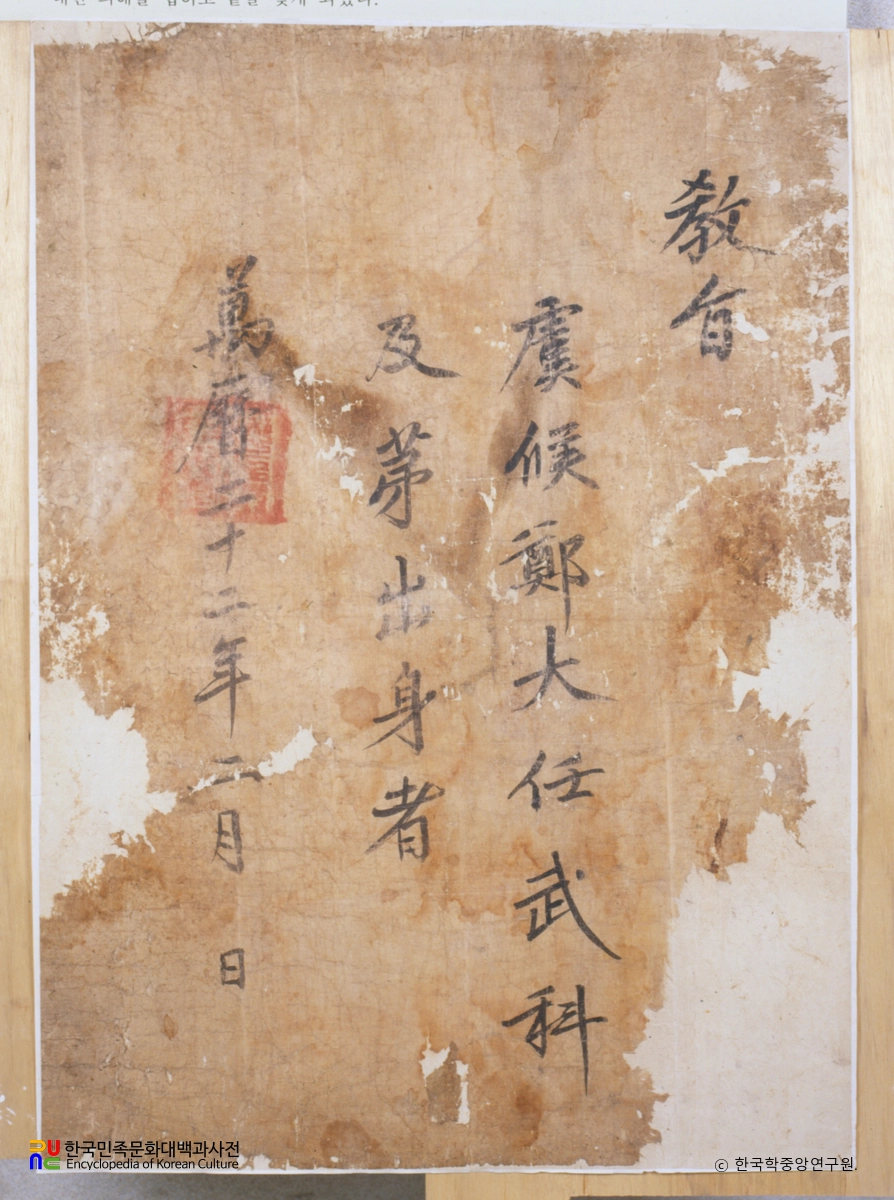 敎旨
虞候鄭大任武科
及苐出身者
萬曆二十二年二月 日
한국민족문화대백과사전
Encyclopedia of Korean Culture
© 한국학중앙연구원.